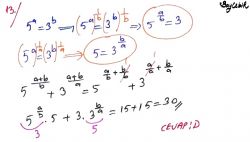 13)
5^a = 3^b → (5^a)^{1/b} = (3^b)^{1/b} ⇒ 5^{a/b} = 3
(5^a)^{1/a} = (3^b)^{1/a} ⇒ 5 = 3^{b/a}
5^{\frac{a+b}{b}} + 3^{\frac{a+b}{a}} = 5^{\frac{a}{b}+\frac{b}{b}} + 3^{\frac{a}{a}+\frac{b}{a}}
5^{a/b} · 5 + 3 · 3^{b/a} = 15 + 15 = 30 //
3 5
CEVAP: D